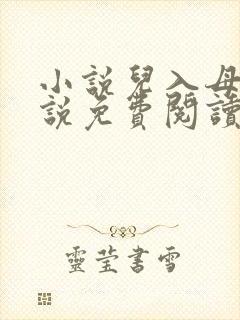 小說兒入母
說免費閱讀
靈瑩書雪